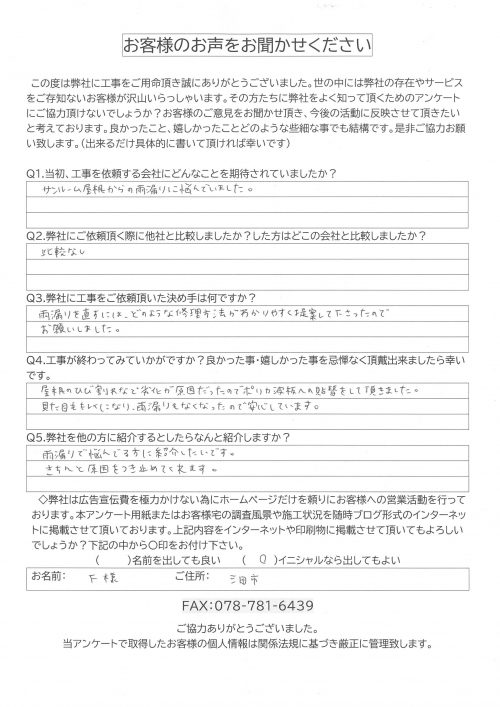 お客様のお声をお聞かせください
この度は弊社に工事をご用命頂き誠にありがとうございました。世の中には弊社の存在やサービス
をご存知ないお客様が沢山いらっしゃいます。その方たちに弊社をよく知って頂くためのアンケート
にご協力頂けないでしょうか？お客様のご意見をお聞かせ頂き、今後の活動に反映させて頂きたい
と考えております。良かったこと、嬉しかったことどのような些細な事でも結構です。是非ご協力お願
い致します。（出来るだけ具体的に書いて頂ければ幸いです）
Q1.当初、工事を依頼する会社にどんなことを期待されていましたか？
サンルーム屋根からの雨漏りに悩んでいました。
Q2.弊社にご依頼頂く際に他社と比較しましたか？した方はどこの会社と比較しましたか？
比較なし
Q3.弊社に工事をご依頼頂いた決め手は何ですか？
雨漏りを直すには、どのような修理方法がわかりやすくご提案して下さったので
お願いしました。
Q4.工事が終わってみていかがですか？良かった事・嬉しかった事を忌憚なく頂戴出来ましたら幸い
です。
屋根のひび割れなど劣化が原因だったのでポリカ波板への貼替をして頂きました。
見た目もキレイになり、雨漏りもなくなったので安心しています。
Q5.弊社を他の方に紹介するとしたらなんと紹介しますか？
雨漏りで悩んでる方に紹介したいです。
きちんと原因をつき止めてくれます。
◇弊社は広告宣伝費を極力かけない為にホームページだけを頼りにお客様への営業活動を行って
おります。本アンケート用紙またはお客様宅の調査風景や施工状況を随時ブログ形式のインターネッ
トに掲載させて頂いております。上記内容をインターネットや印刷物に掲載させて頂いてもよろしい
でしょうか？下記の中から〇印をお付け下さい。
（　　）名前を出しても良い　（ O ）イニシャルなら出してもよい
お名前： F 様　ご住所： 三田市
FAX：078-781-6439
ご協力ありがとうございました。
当アンケートで取得したお客様の個人情報は関係法規に基づき厳正に管理致します。